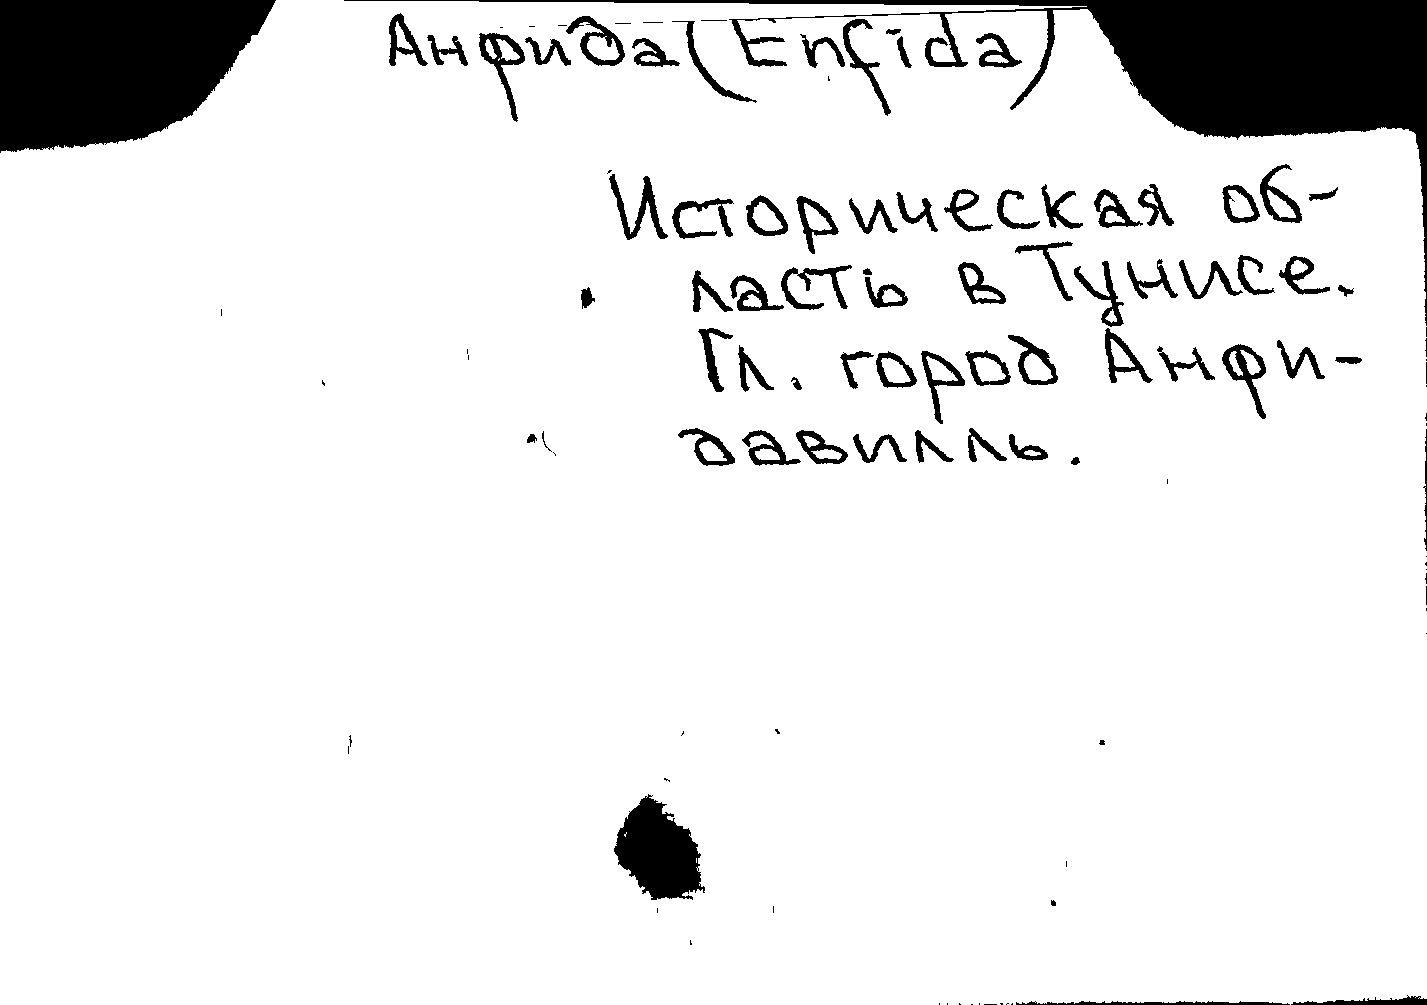 Анфида (Enfida)
Историческая об-
ласть в Тунисе.
Гл. город Анфи-
давилль.